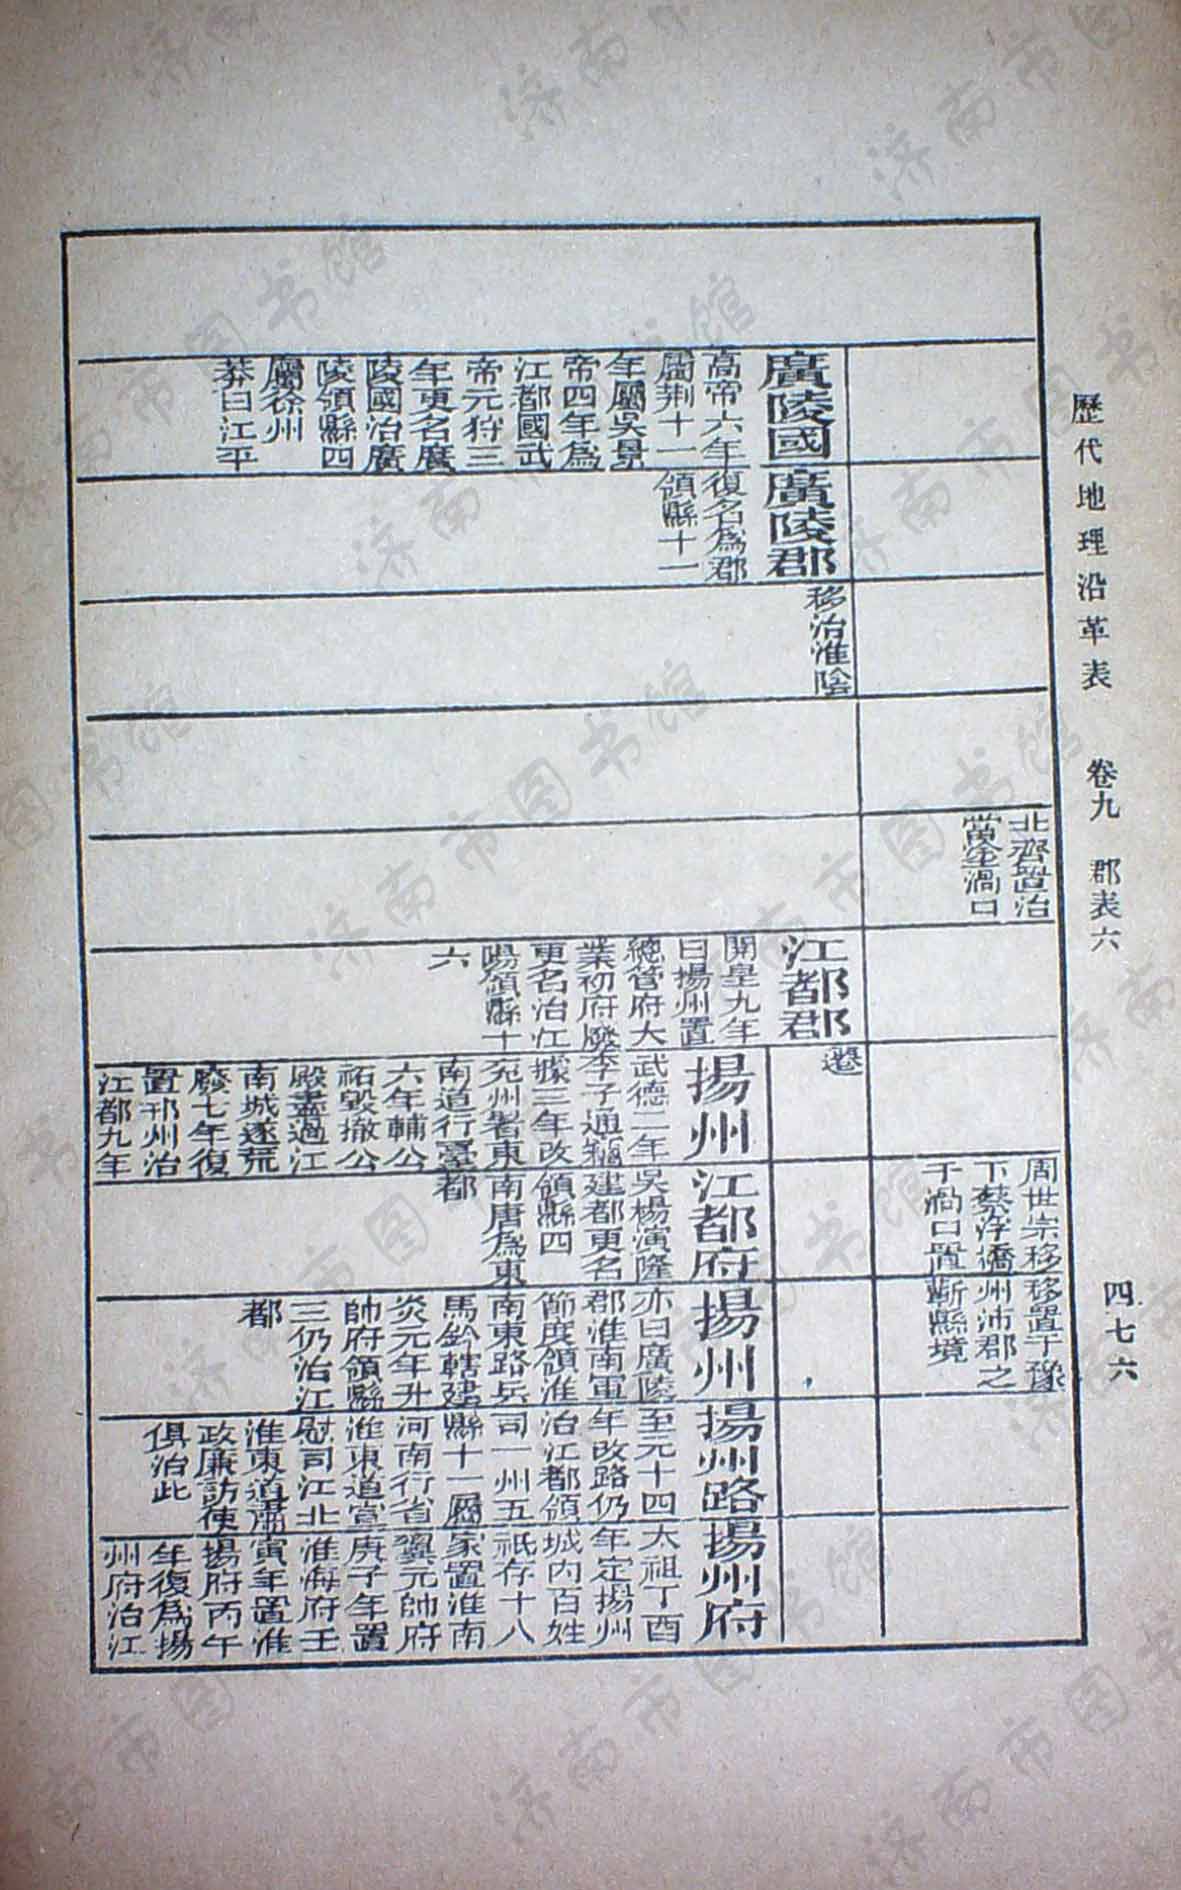 歷代地理沿革表 卷九 郡表六 四七六
北齊置治
當塗渦口
周世宗移
下蔡浮橋
于渦口置
移置于豫
州沛郡之
蘄縣境
廣陵國
高帝六年
屬荆十一
年屬吳景
帝四年爲
江都國武
帝元狩三
年更名廣
陵國治廣
陵領縣四
屬徐州
莽曰江平
廣陵郡
復名爲郡
領縣十一
移治淮陰
江都郡
開皇九年
曰揚州置
總管府大
業初府廢
更名治江
陽領縣十
六
遷
揚州
武德二年
李子通竊
據三年改
兖州署東
南道行臺
六年輔公
祏毀撤公
殿晝過江
南城遂荒
廢七年復
置邗州治
江都九年
江都府
吳楊演隆
建都更名
領縣四
南唐爲東
都
揚州
亦曰廣陵
郡淮南軍
節度領淮
南東路兵
馬鈐轄建
炎元年升
帥府領縣
三仍治江
都
揚州路
至元十四
年改路仍
治江都領
司一州五
縣十一屬
河南行省
淮東道宣
慰司江北
淮東道肅
政廉訪使
俱治此
揚州府
太祖丁酉
年定揚州
城内百姓
祇存十八
家置淮南
翼元帥府
庚子年置
淮海府壬
寅年置淮
揚府丙午
年復爲揚
州府治江
济南市图书馆